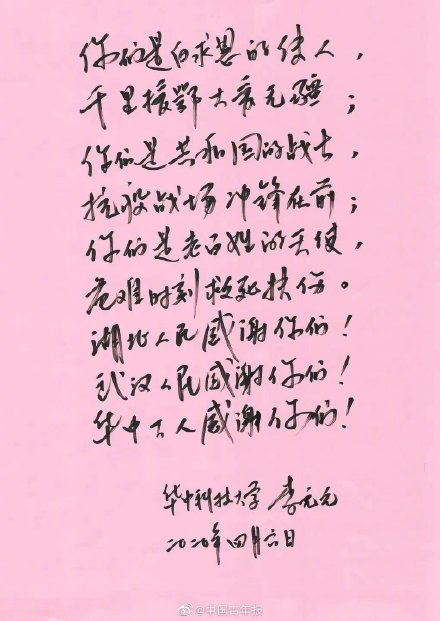 你们是白求恩的传人，
千里援鄂大爱无疆；
你们是共和国的战士，
抗疫战场冲锋在前；
你们是老百姓的天使，
危难时刻救死扶伤。
湖北人民感谢你们！
武汉人民感谢你们！
华中大人感谢你们！
华中科技大学 李元元
二〇二〇年四月六日
@中国青年报